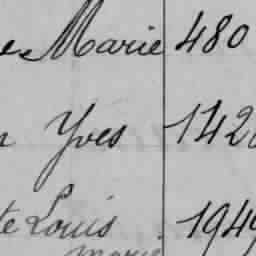 e Marie 480
Yves 142
te Louis 194
Marie